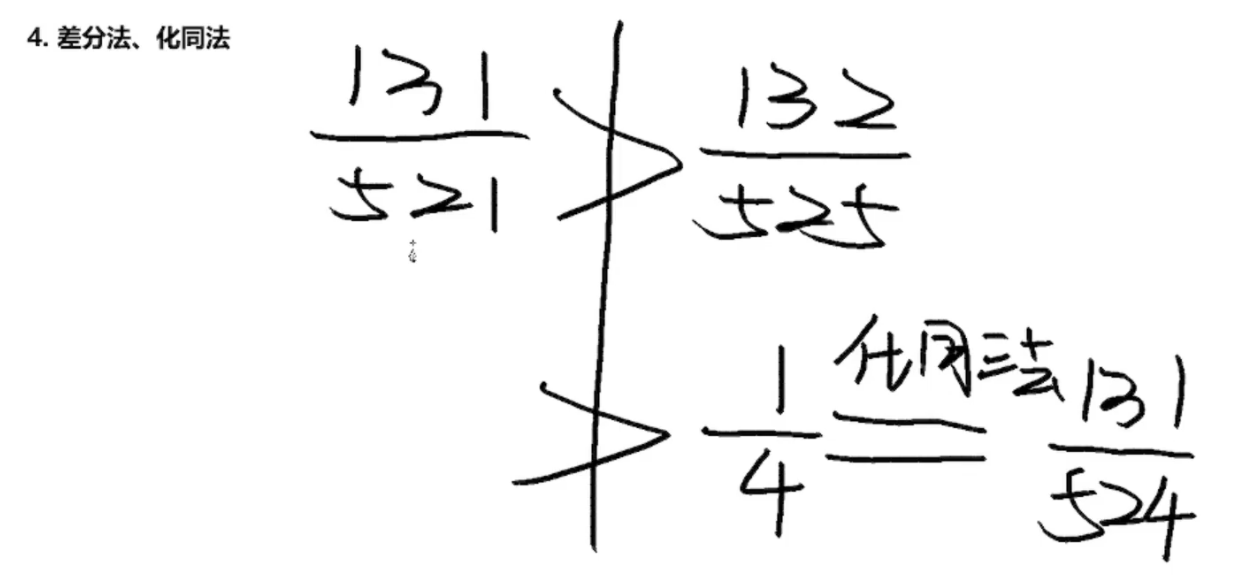 4. 差分法、化同法
131/521 > 132/525
> 1/4 = 131/524
化同法